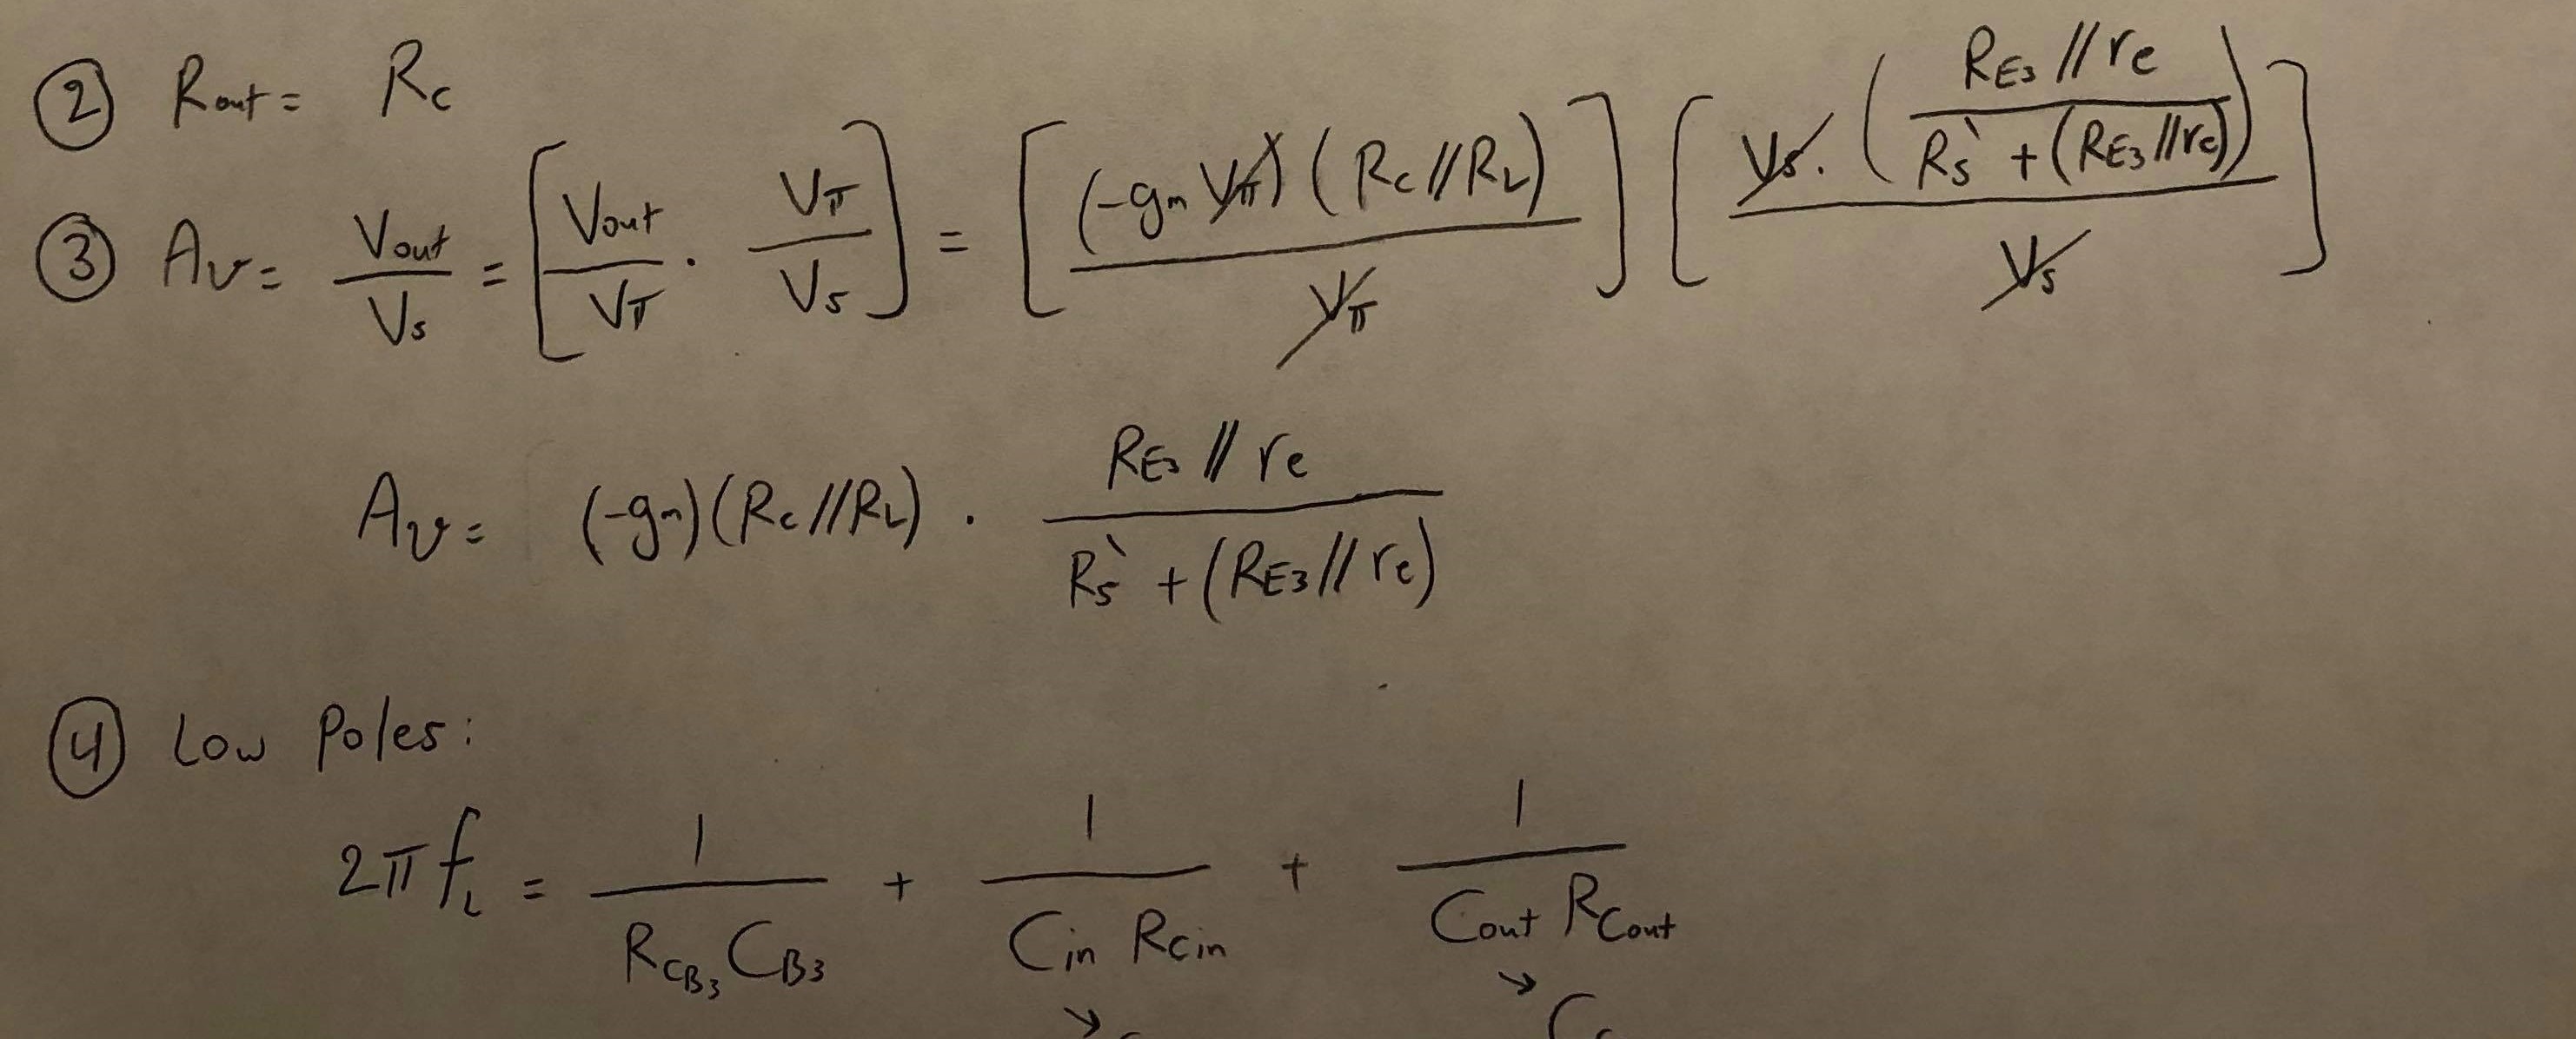 ② Rout = Rc
③ Av = Vout/Vs = [Vout/Vπ · Vπ/Vs] = [(-gm Vπ)(Rc//RL)/Vπ] [Vs·(RE3//re/(Rs` + (RE3//re)))/Vs]
Av = (-gm)(Rc//RL) · RE3//re/(Rs` + (RE3//re))
④ Low Poles:
2πfL = 1/(RCB3 CB3) + 1/(Cin RCin) + 1/(Cout RCout)